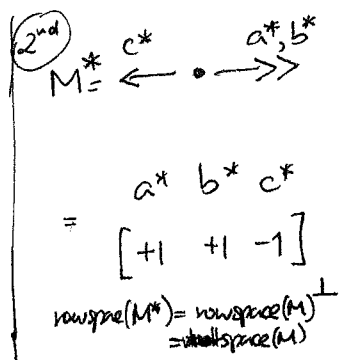 2nd
c* a*, b*
M* = ← • →>
a* b* c*
= [+1 +1 -1]
rowspace(M*) = rowspace(M)⊥
= nullspace(M)